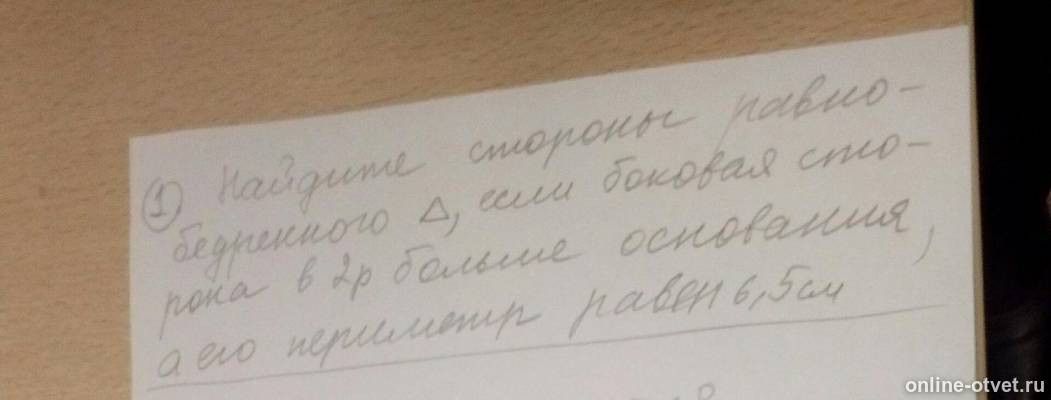 ① Найдите стороны равно-
бедренного △, если боковая сто-
рона в 2р больше основания,
а его периметр равен 6,5см
online-otvet.ru